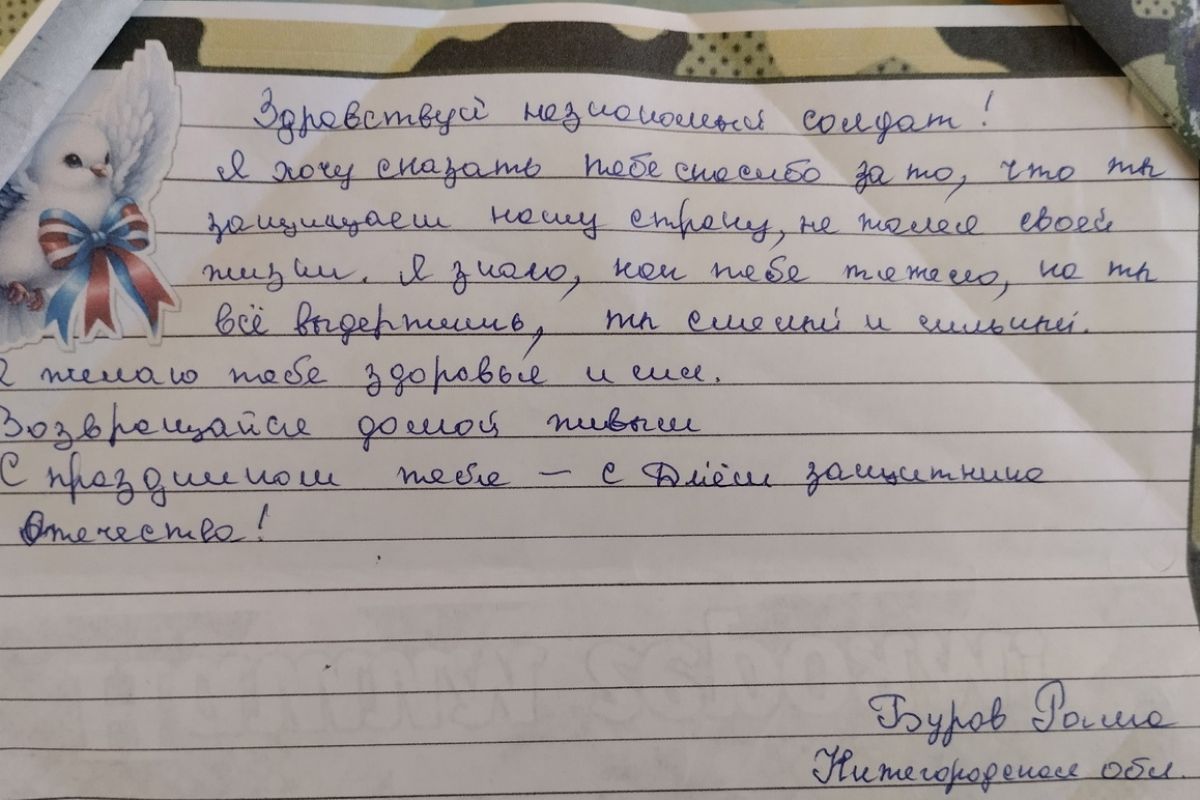 Здравствуй незнакомый солдат!
Я хочу сказать тебе спасибо за то, что ты
защищаеш нашу страну, не жалея своей
жизни. Я знаю, как тебе тяжело, но ты
всё выдержишь, ты смелый и сильный.
Я желаю тебе здоровья и сил.
Возвращайся домой живым
С праздником тебя – с Днём защитника
Отечества!
Буров Рома
Нижегородская обл.